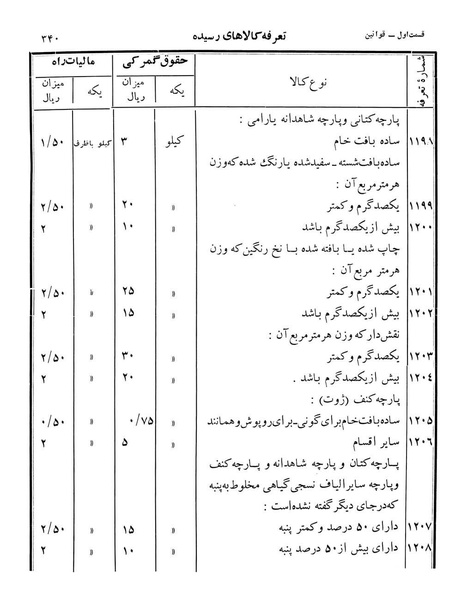 قسمت اول – قوانین تعرفه کالاهای رسیده ۳۴۰
شمارهٔ تعرفه نوع کالا حقوق گمرکی مالیات راه
یکه میزان ریال یکه میزان ریال
پارچه کتانی و پارچه شاهدانه یا رامی :
۱۱۹۸ ساده بافت خام کیلو ۳ کیلو باظرف ۱/۵۰
ساده بافت شسته ــ سفید شده یا رنگ شده که وزن
هر متر مربع آن :
۱۱۹۹ یکصد گرم و کمتر » ۲۰ » ۲/۵۰
۱۲۰۰ بیش از یکصد گرم باشد » ۱۰ » ۲
چاپ شده یا بافته شده با نخ رنگین که وزن
هر متر مربع آن :
۱۲۰۱ یکصد گرم و کمتر » ۲۵ » ۲/۵۰
۱۲۰۲ بیش از یکصد گرم باشد » ۱۵ » ۲
نقش دار که وزن هر متر مربع آن :
۱۲۰۳ یکصد گرم و کمتر » ۳۰ » ۲/۵۰
۱۲۰۴ بیش از یکصد گرم باشد . » ۲۰ » ۲
پارچه کنف (ژوت) :
۱۲۰۵ ساده بافت خام برای گونی ــ برای روپوش و همانند » ۰/۷۵ » ۰/۵۰
۱۲۰۶ سایر اقسام » ۵ » ۲
پارچه کتان و پارچه شاهدانه و پارچه کنف
و پارچه سایر الیاف نسجی گیاهی مخلوط به پنبه
که در جای دیگر گفته نشده است :
۱۲۰۷ دارای ۵۰ درصد و کمتر پنبه » ۱۵ » ۲/۵۰
۱۲۰۸ دارای بیش از ۵۰ درصد پنبه » ۱۰ » ۲